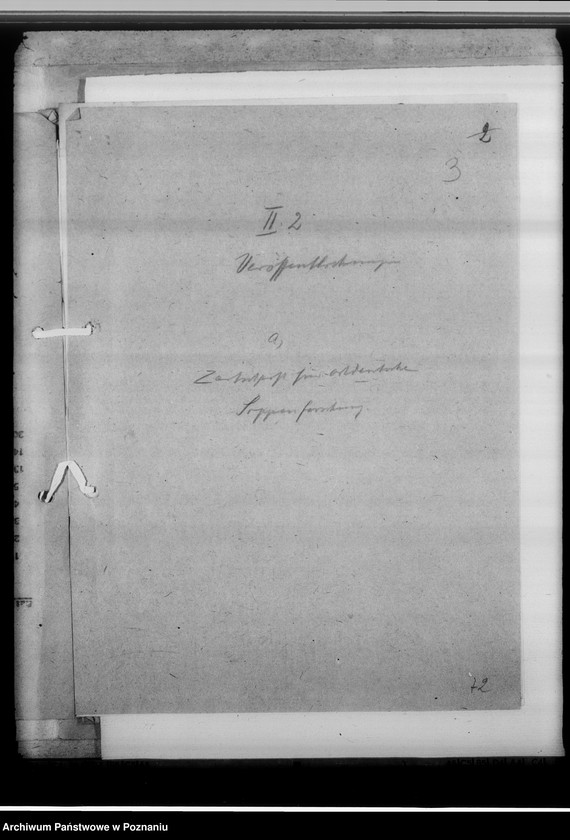 2
3
II. 2
Veröffentlichungen
a)
Zeitschrift für ostdeutsche
Sippenforschung
72
Archiwum Państwowe w Poznaniu